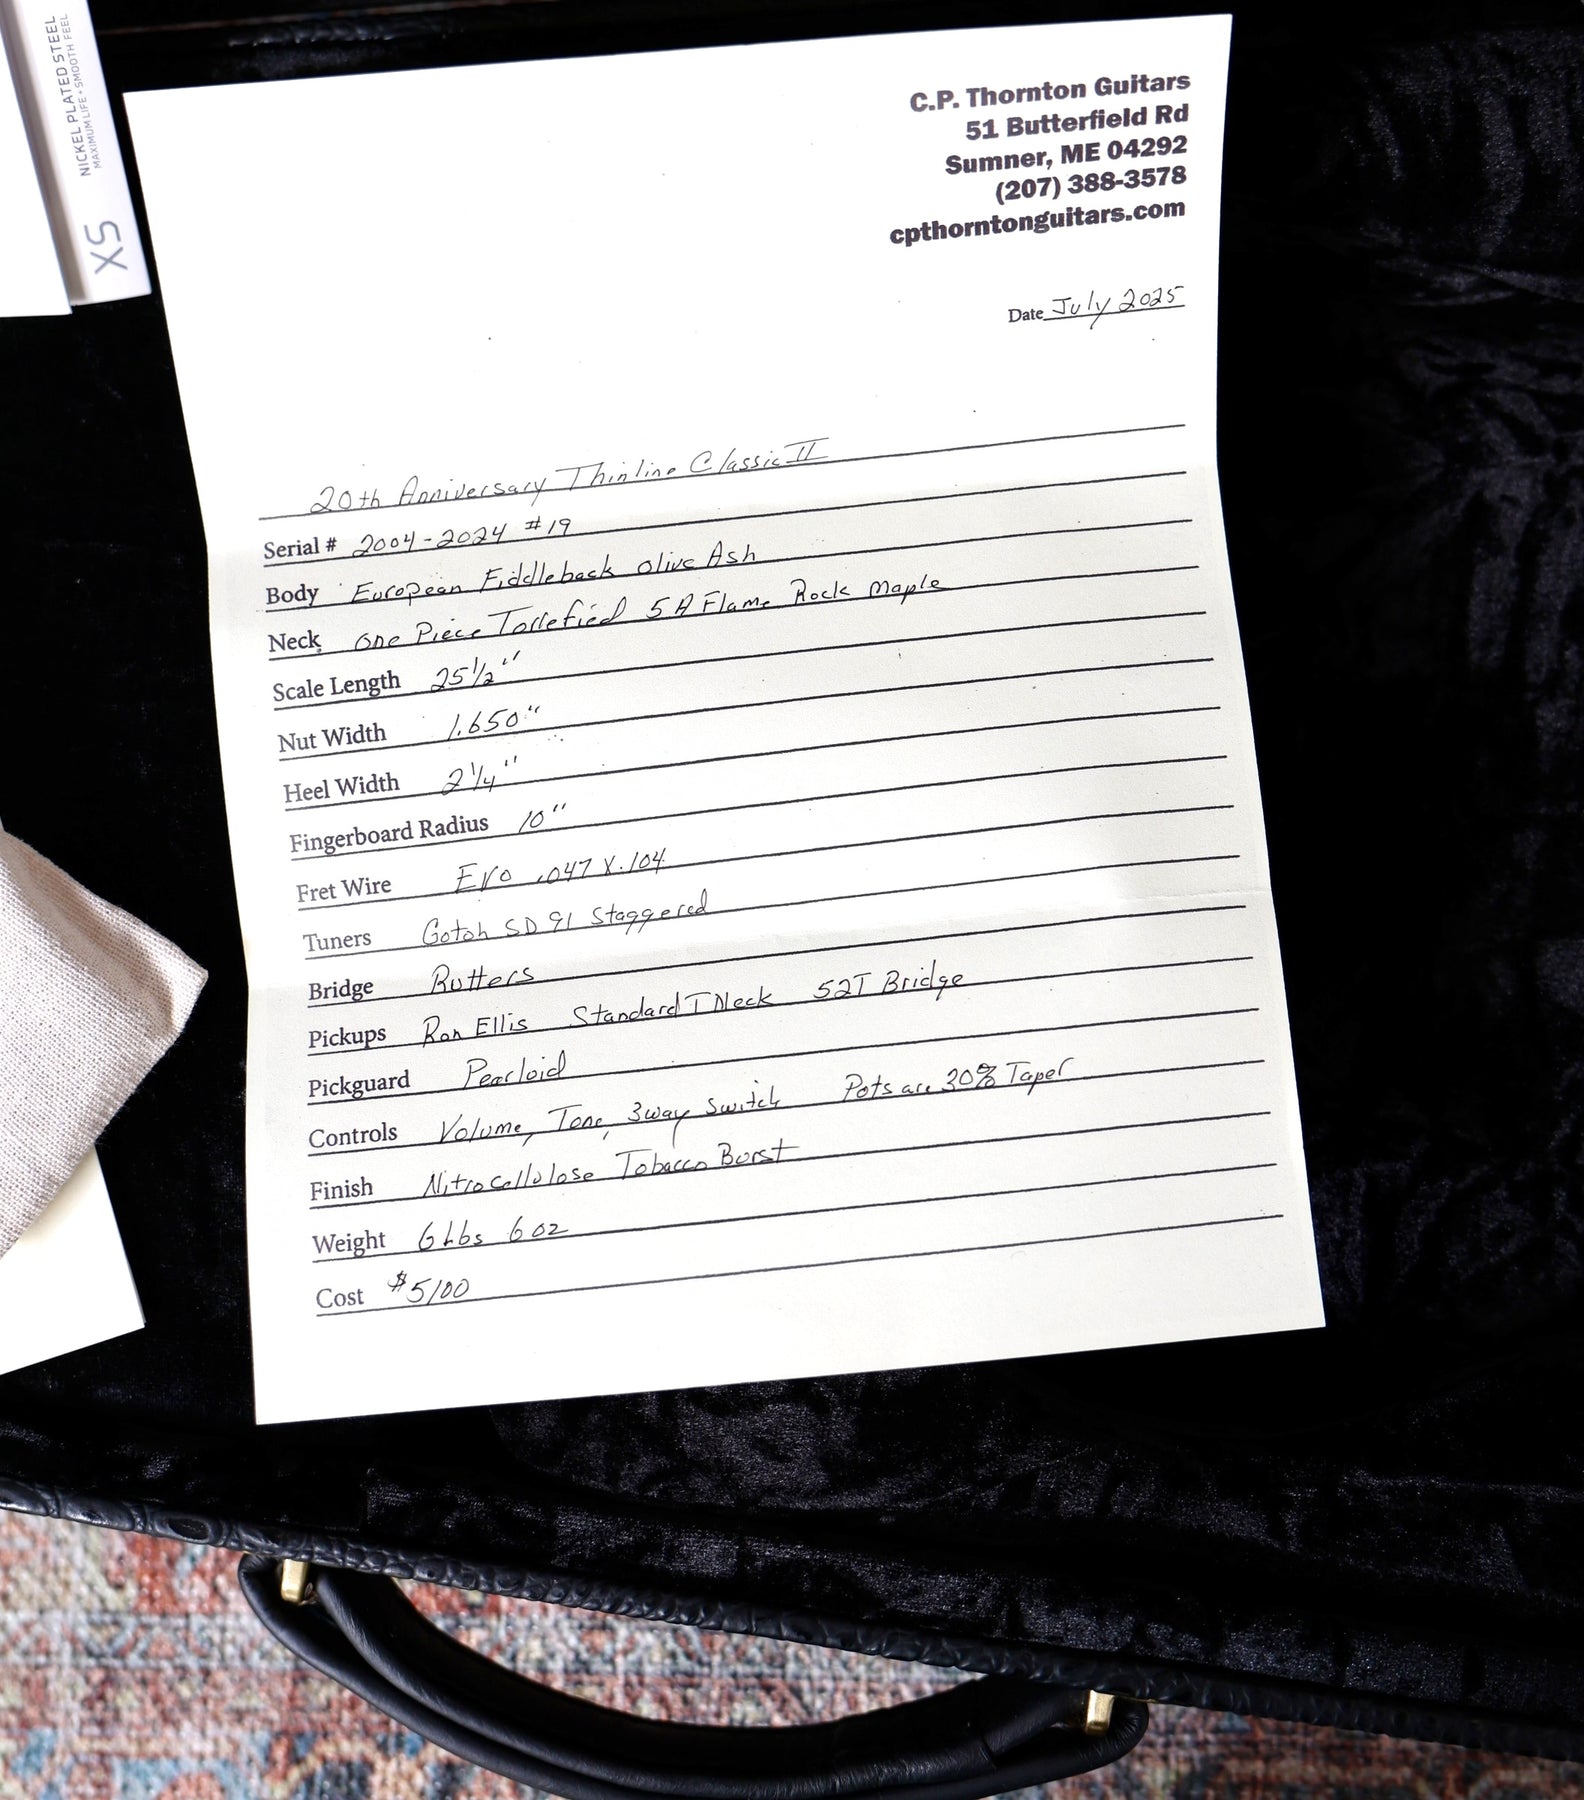 NICKEL PLATED STEEL
MAXIMUM LIFE • SMOOTH FEEL
XS
C.P. Thornton Guitars
51 Butterfield Rd
Sumner, ME 04292
(207) 388-3578
cpthorntonguitars.com
Date July 2025
20th Anniversary Thinline Classic II
Serial # 2004-2024 #19
Body European Fiddleback Olive Ash
Neck One Piece Torrefied 5A Flame Rock Maple
Scale Length 25 1/2"
Nut Width 1.650"
Heel Width 2 1/4"
Fingerboard Radius 10"
Fret Wire Evo .047 X .104
Tuners Gotoh SD 91 Staggered
Bridge Rutters
Pickups Ron Ellis Standard T Neck 52T Bridge
Pickguard Pearloid
Controls Volume, Tone, 3way Switch Pots are 30% Taper
Finish Nitrocellulose Tobacco Burst
Weight 6 Lbs 6 oz
Cost $5100